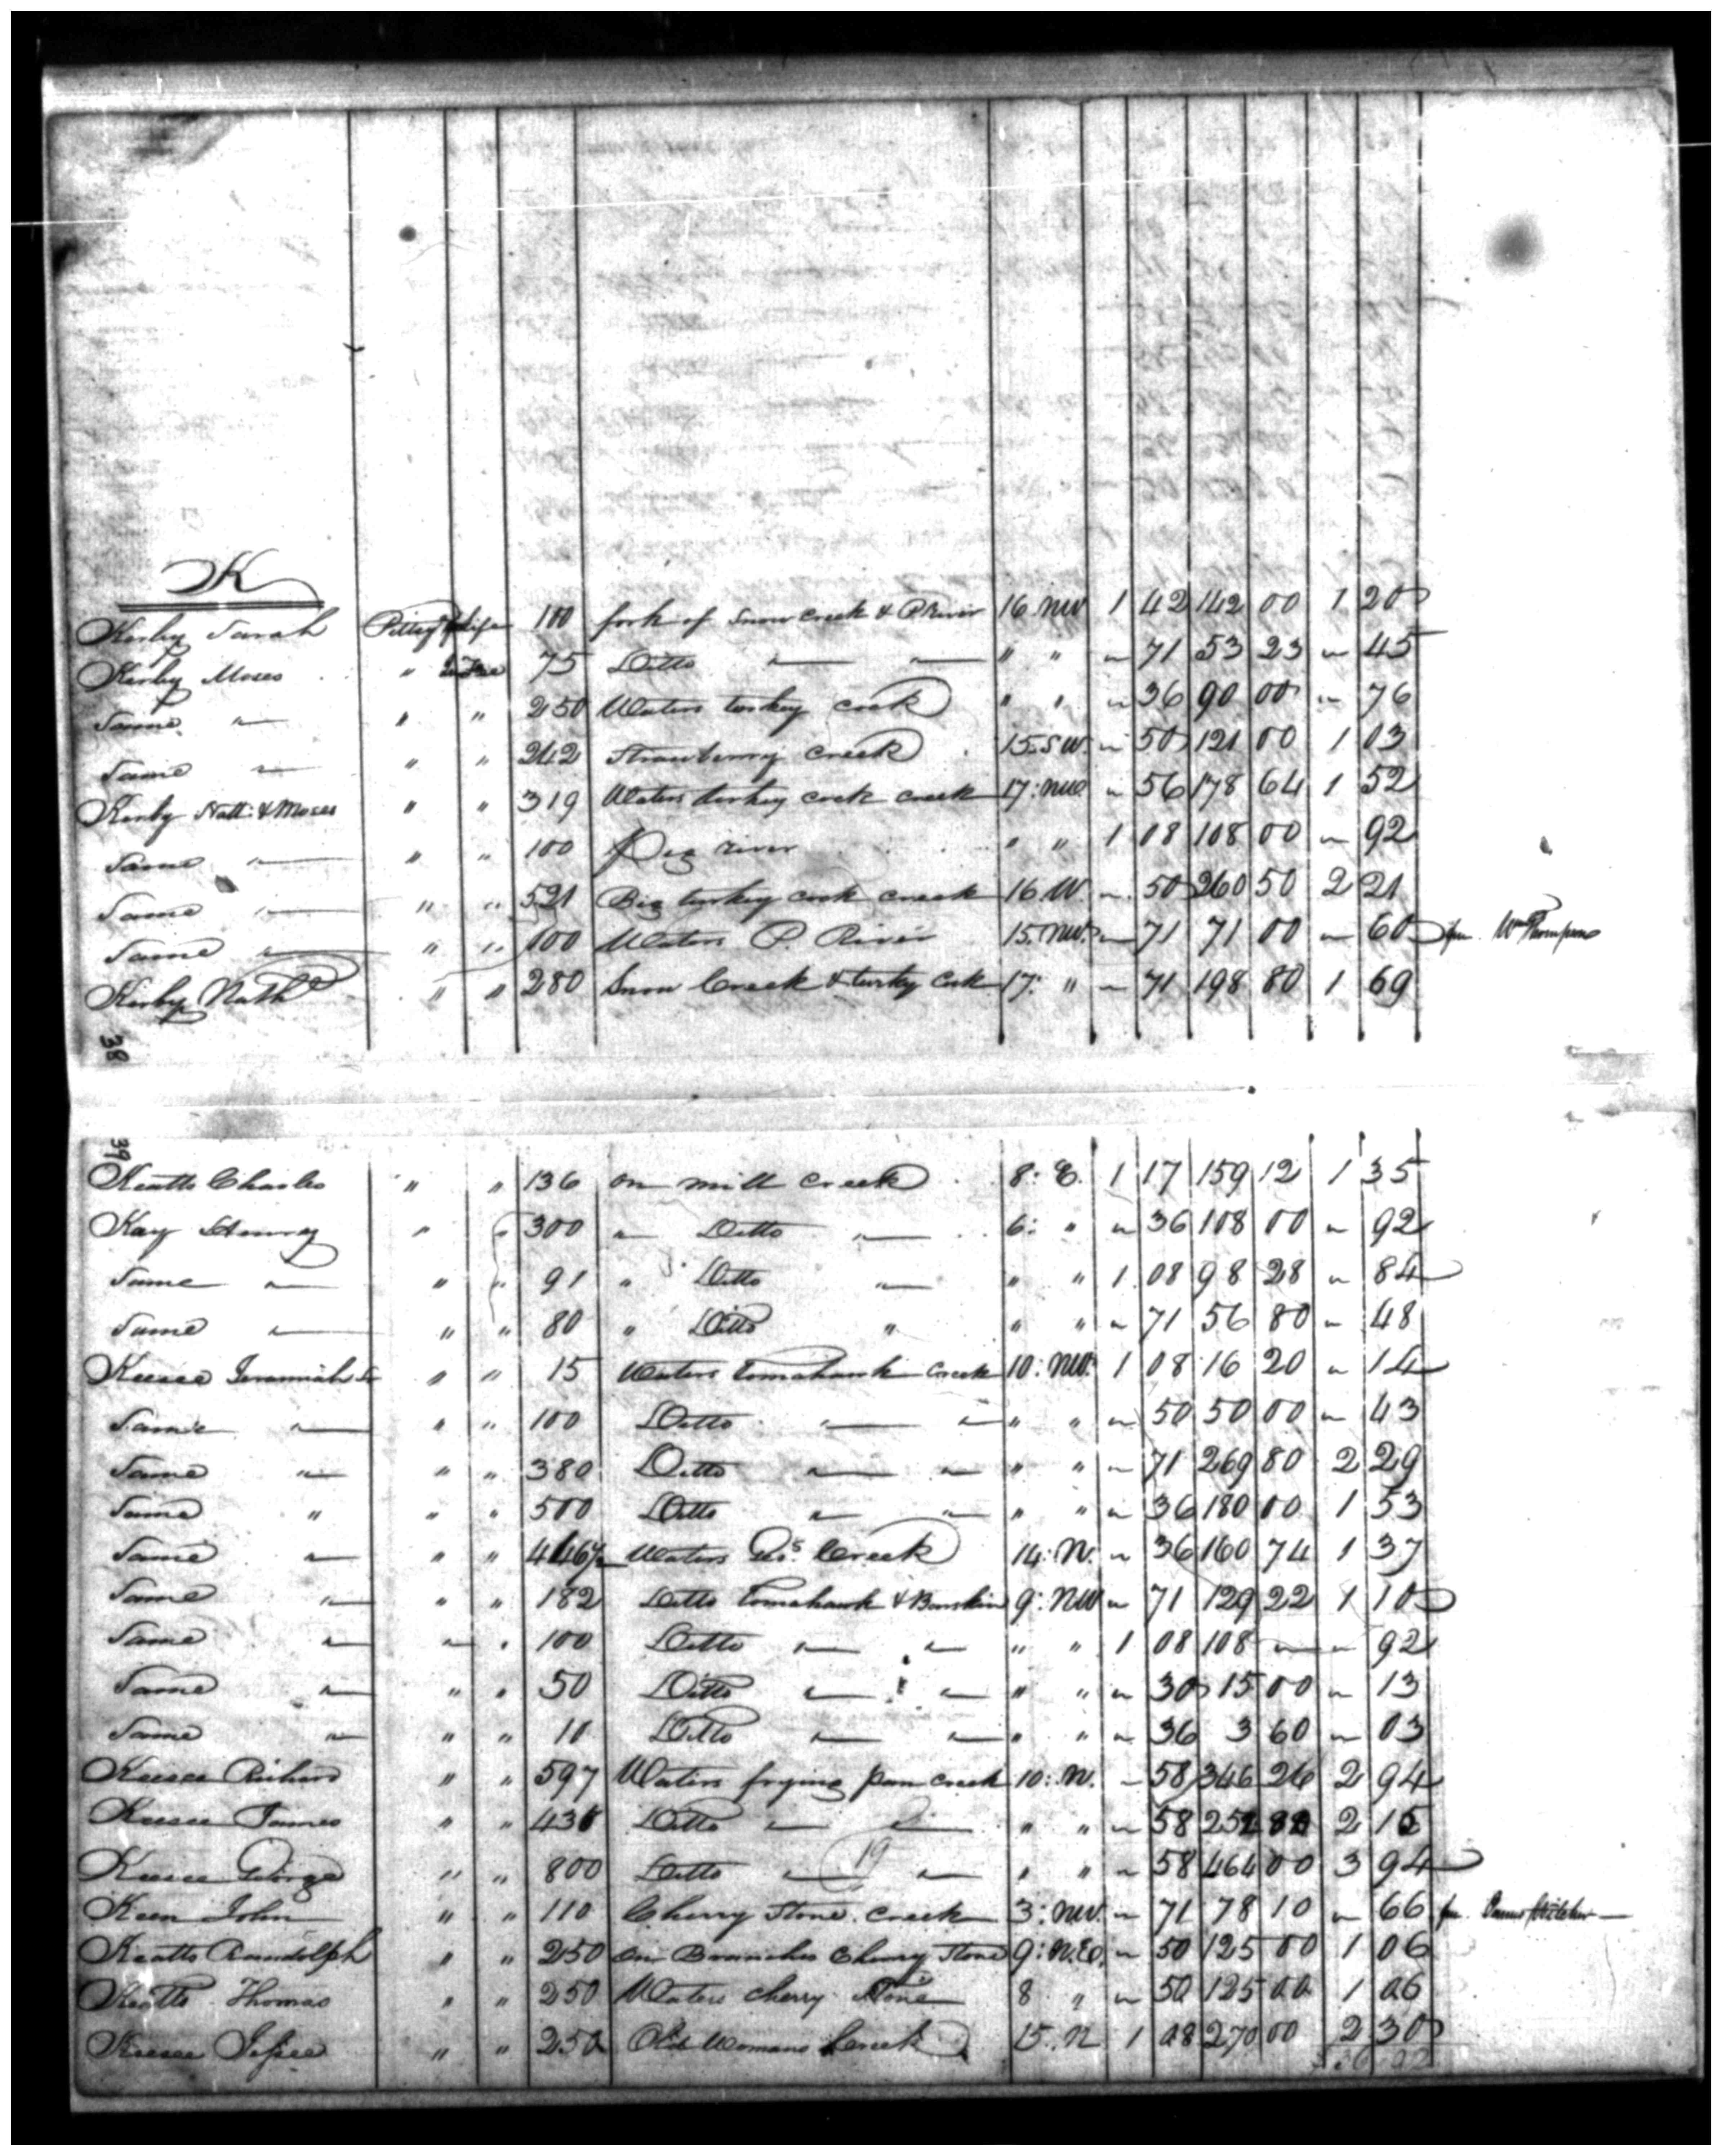 K
Kerby Sarah Pittsy Life 100 fork of Snow Creek & P River 16 NW 1 42 142 00 1 20
Kerby Moses " In Fee 75 Ditto — — " " " 71 53 23 " 45
Same — " " 250 Waters turkey cock " " " 36 90 00 " 76
Same — " " 242 Strawberry creek 15 SW " 50 121 00 1 03
Kerby Natl: & Moses " " 319 Waters turkey cock creek 17: NW " 56 178 64 1 52
Same — " " 100 Pig river " " 1 08 108 00 " 92
Same — " " 521 Big turkey cock creek 16 W. " 50 260 50 2 21
Same — " " 100 Waters P. River 15. NW. " 71 71 00 " 60 fm. Wm Thompson
Kerby Nathl " " 280 Snow Creek & turky Cock 17: " " 71 198 80 1 69
38
39
Keatts Charles " " 136 on mill creek 8: E. 1 17 159 12 1 35
Kay Henry " " 300 " Ditto — 6: " " 36 108 00 " 92
Same — " " 91 " Ditto — " " 1 08 98 28 " 84
Same — " " 80 " Ditto " " " " 71 56 80 " 48
Keesee Jeremiah Sr " " 15 Waters Tomahawk Creek 10: NW. 1 08 16 20 " 14
Same — " " 100 Ditto — — " " " 50 50 00 " 43
Same — " " 380 Ditto — — " " " 71 269 80 2 29
Same " " " 500 Ditto — — " " " 36 180 00 1 53
Same — " " 446½ Waters Creek 14: N. " 36 160 74 1 37
Same — " " 182 Ditto Tomahawk & 9: NW " 71 129 22 1 10
Same — " " 100 Ditto — — " " 1 08 108 — " 92
Same — " " 50 Ditto — — " " " 30 15 00 " 13
Same — " " 10 Ditto — — " " " 36 3 60 " 03
Keesee Richard " " 597 Waters frying pan creek 10: N. " 58 346 26 2 94
Keesee James " " 436 Ditto — — " " " 58 252 88 2 15
Keesee George " " 800 Ditto — 19 — " " " 58 464 00 3 94
Keen John " " 110 Cherry Stone creek 3: NW. " 71 78 10 " 66 fm.
Keatts Randolph " " 250 on Branches Cherry Stone 9: N.E. " 50 125 00 1 06
Keatts Thomas " " 250 Waters cherry Stone 8 " " 50 125 00 1 06
Keesee Jesse " " 250 Old Womans Creek 15. N 1 08 270 00 2 30